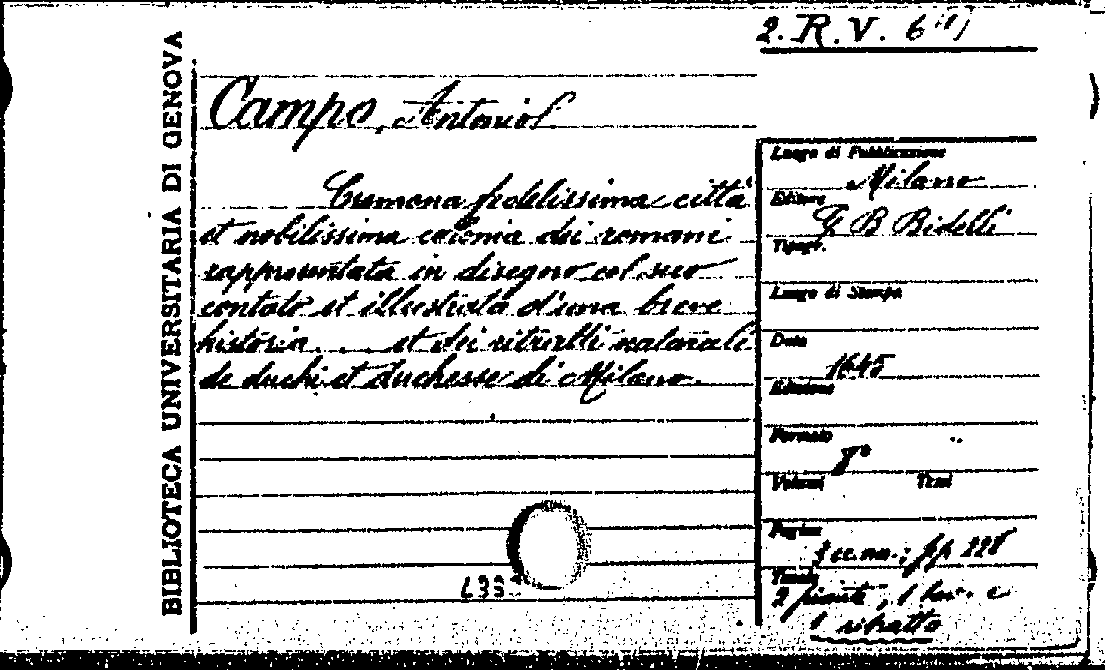 2. R. V. 6
BIBLIOTECA UNIVERSITARIA DI GENOVA
Campo, Antonio
Cremona fidelissima città
et nobilissima colonia dei romani
rappresentata in disegno col suo
contato et illustrata d'una breve
historia... et dei ritratti naturali
de duchi et duchesse di Milano.
Luogo di Pubblicazione
Milano
Editore
G B Bidelli
Tipogr.
Luogo di Stampa
Data
1645
Edizione
Formato
8°
Volumi Tomi
Pagine
cc.nn.; pp 228
Tavole
2 piante, 1 tav. e
1 ritratto